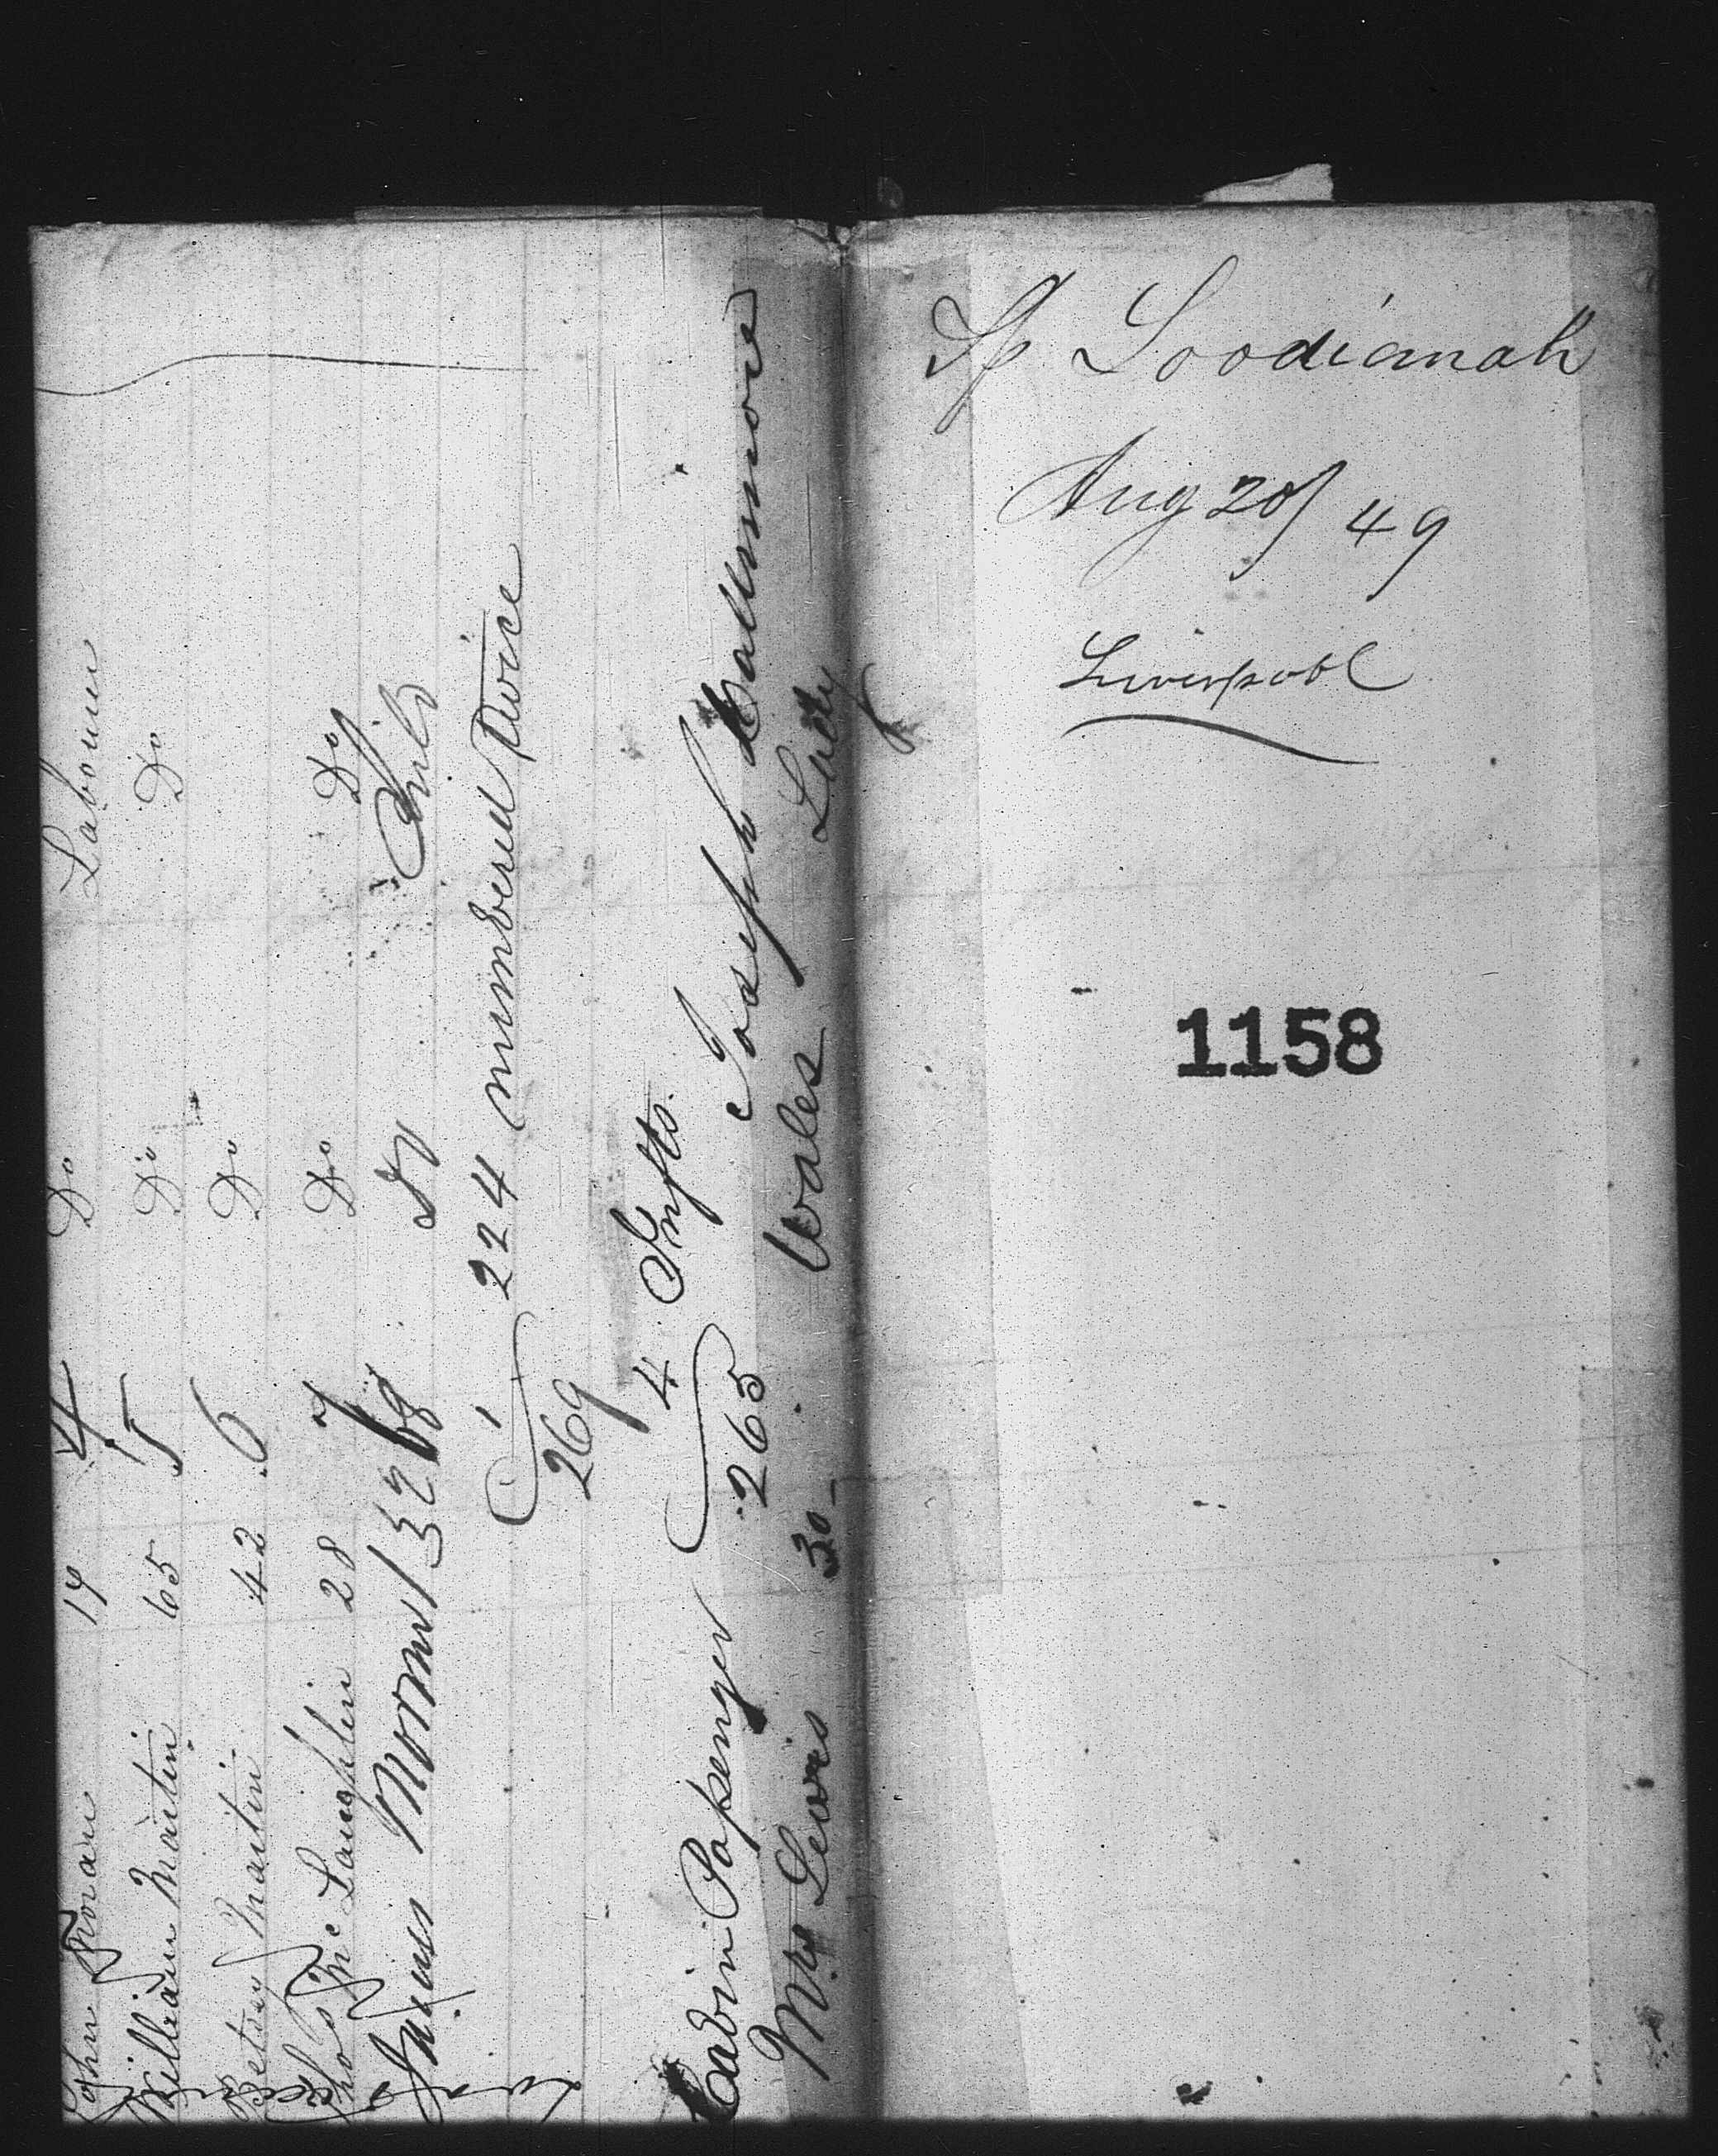 John Foran 19 4 Do Labourer
William Martin 65 5 Do Do
Betsey Martin 42 6 Do
Thos McLaughlin 28 7 Do Do
James 3 268 Do Child
1 224 numbered Twice
269
4 Infts.
265 Joseph
Cabin Passenger
Mrs Lewis 30 Wales Lady
Sp Loodianah
Aug 20/49
Liverpool
1158